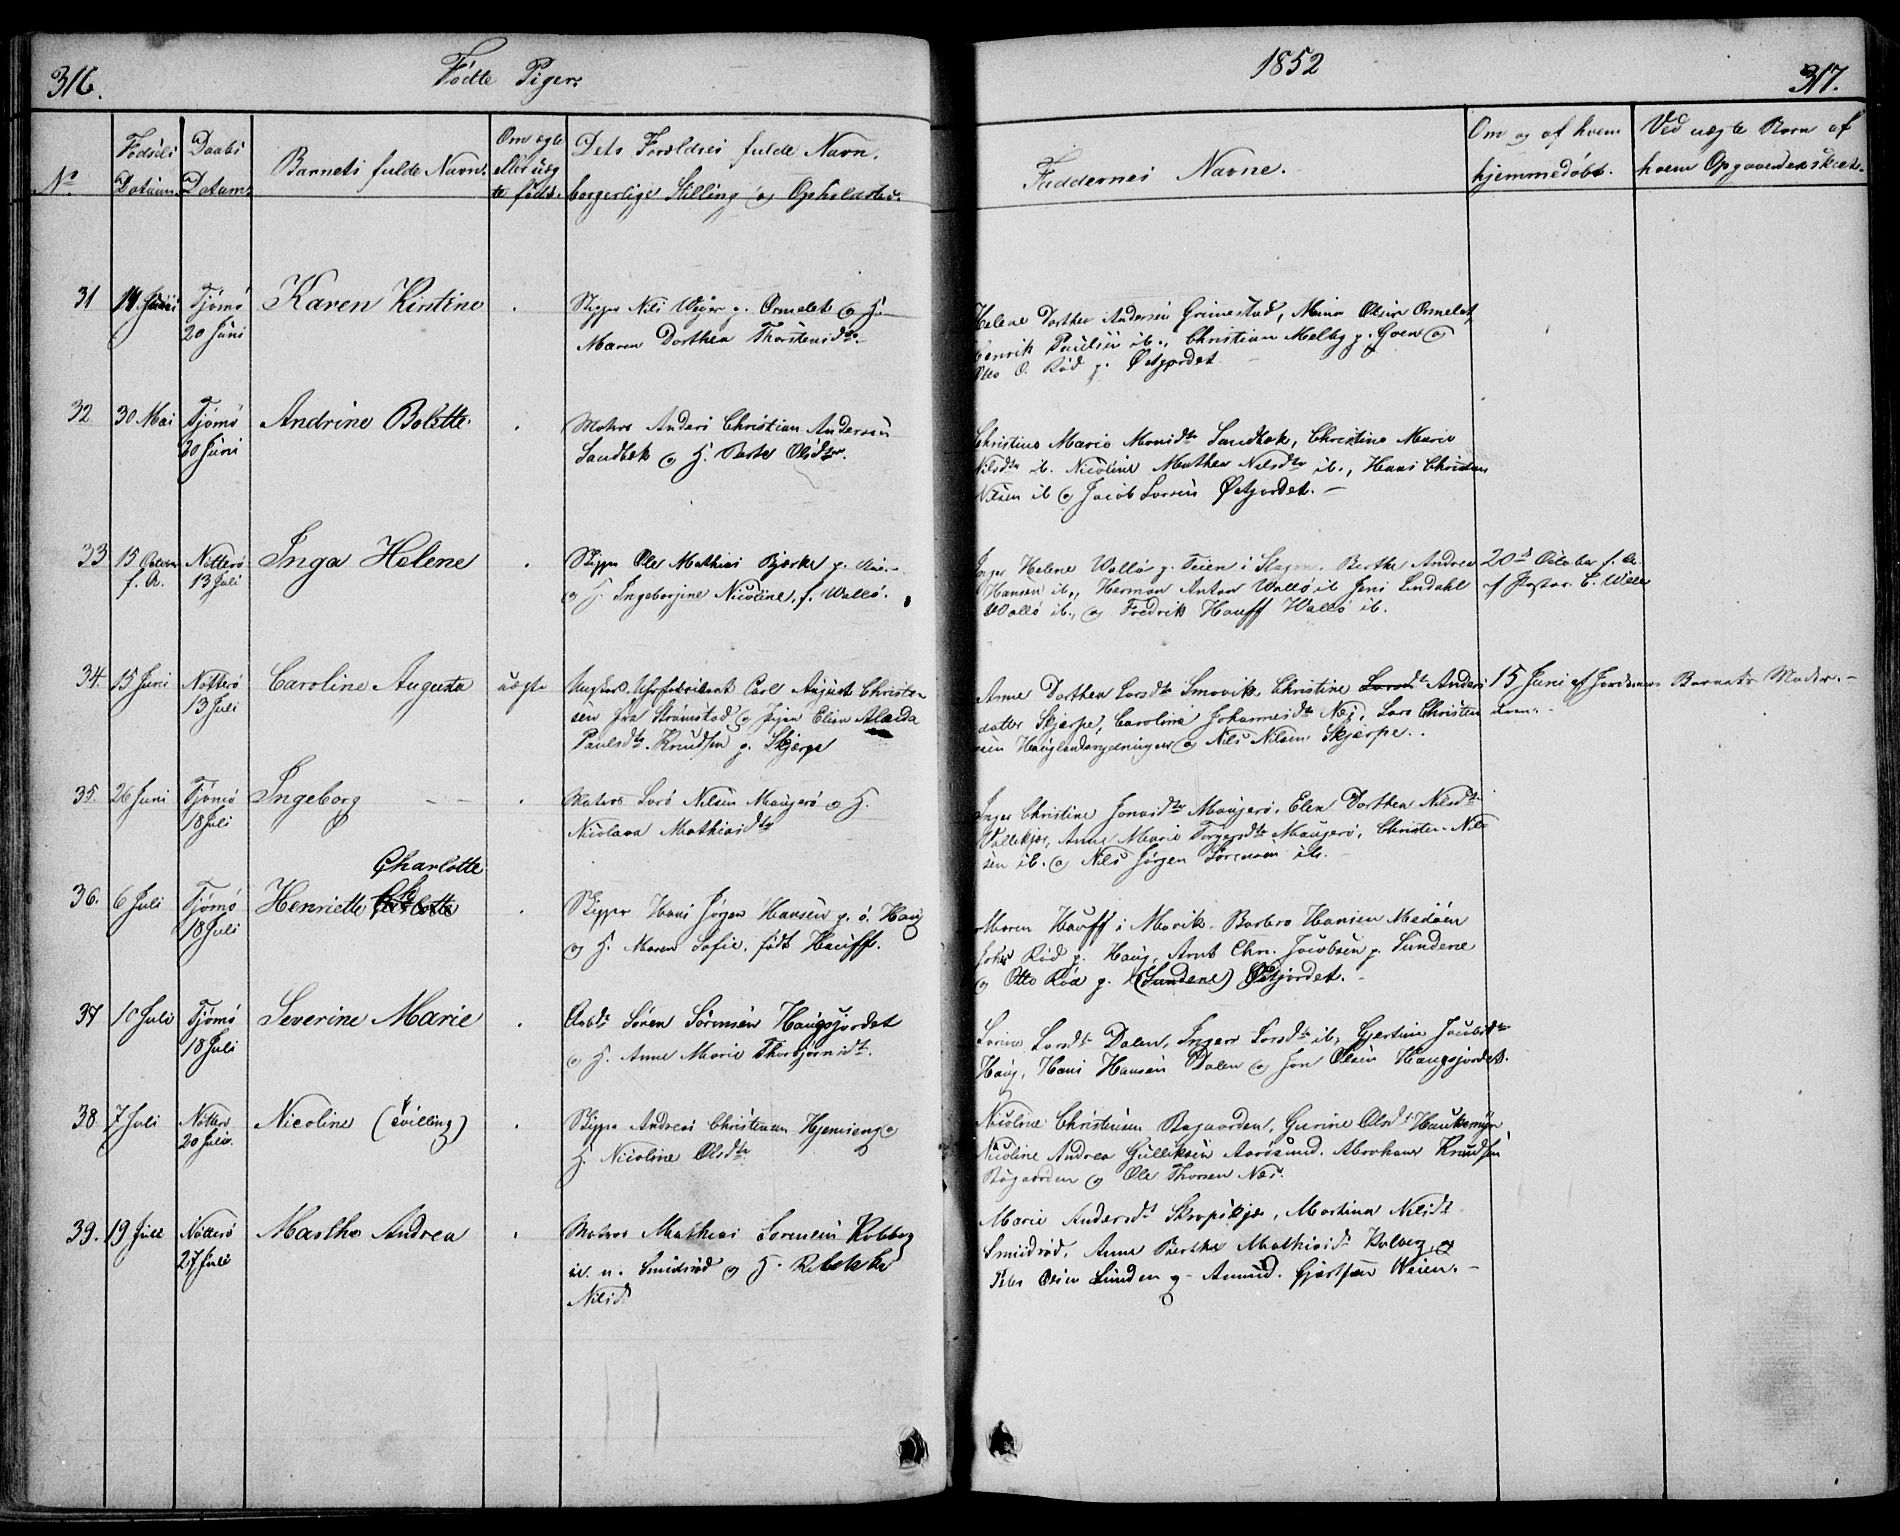 316.
Fødte Piger.
1852
317.
No
Fødsels Datum.
Daabs Datum.
Barnets fulde Navn.
Om ægte eller uægte født.
Dets Forældres fulde Navn, borgerlige Stilling og Opholdsted.
Faddernes Navne.
Om og af hvem hjemmedøbt.
Ved uægte Børn af hvem Opgaven er skeet.
31 Juni Tjømø 20 Juni Karen Kirstine
Skipper Nils p. Ormelet og H.
Maren Dorthea Thorstensdtr
Helene Dorthea Andersen Grimestad, Olsen Ormelet,
Henrik Paulsen ib., Christian Melby p.
Otto O. Rød p. Østjordet
32 30 Mai Tjømø 20 Juni Andrine Bolette
Matros Anders Christian Andersen
Sandbek og H. Olsdtr.
Christine Marie Sandbek, Christine Marie
Nilsdtr ib. Nicoline Mathea Nilsdtr ib., Hans Christian
Nilsen ib og Jacob Larsen Østjordet.
33 15 October f. A. Nøtterø 13 Juli Inga Helene
Skipper Ole Mathias Bjerke p.
og H. Ingeborgine Nicoline, f. Walløe.
Inger Helene Wallø p. Teien i Slagen. Berthe Andrea
Hansen ib., Herman Anton Wallø ib Jens Lindahl
Wallø ib., og Fredrik Hauff Wallø ib.
20de October f. A.
af Pastor C.
34. 15 Juni Nøtterø 13 Juli Caroline Augusta uægte
Ungkarl Carl August Christen
sen fra Strømstad og Pigen Elisa Alvilda
Paulsdtr. Knudsen p. Skjerpe
Anne Dorthea Larsdtr Smovik, Christine Larsdt Anders
datter Skjerpe, Caroline Johannesdtr Nes, Lars Christen
sen og Nils Nilsen Skjerpe.
15 Juni af Jordemo
deren.
Barnets Moder.
35. 26 Juni Tjømø 18 Juli Ingeborg
Matros Lars Nilsen Maugerø og H.
Nicolava Mathiasdtr
Inger Christine Jonasdtr Maugerø, Elen Dorthea Nilsdtr
Vallekjær, Anne Marie Torgersdtr Maugerø, Christen Nil
sen ib. og Nils Jørgen Sørensen ib.
Charlotte
36. 6 Juli Tjømø 18 Juli Henriette
Skipper Hans Jørgen Hansen p. ø. Haug
og H. Maren Sofie, født Hauff.
Maren Hauff i Møvik. Barbro Hansen
Rød p. Haug, Arnt Chr. Jacobsen p. Sundene
og Otto Rød p. (Sundene) Østjordet.
37 10 Juli Tjømø 18 Juli Severine Marie
Søren Sørensen Haugsjordet
og H. Anne Marie Thorbjørnsdtr.
Larsdtr Dalen, Inger Larsdtr ib, Gjertine Jacobsdtr
Haug, Hans Hansen Dalen og Jon Olsen Haugsjordet.
38. 7 Juli Nøtterø 20 Juli Nicoline (tvilling)
Skipper Andreas Christensen Hjemseng og
H. Nicoline Olsdtr
Nicoline Christensen Bøgaarden, Gurine Olsdt
Nicoline Andrea Gulliksen Aarøsund. Abraham Knudsen
Bøgaarden og Ole Thorsen Næs.
39. 19 Juli Nøtterø 27 Juli Marthe Andrea
Matros Mathias Sørensen Kolberg
n. Smidsrød og H. Rebekka
Nilsdt
Marie Andersdt Martine Nilsdt
Smidsrød, Anne Berthe Mathiasdt Kolberg, og
Peder Olsen Lunden og Amund Gjertsen Weien.